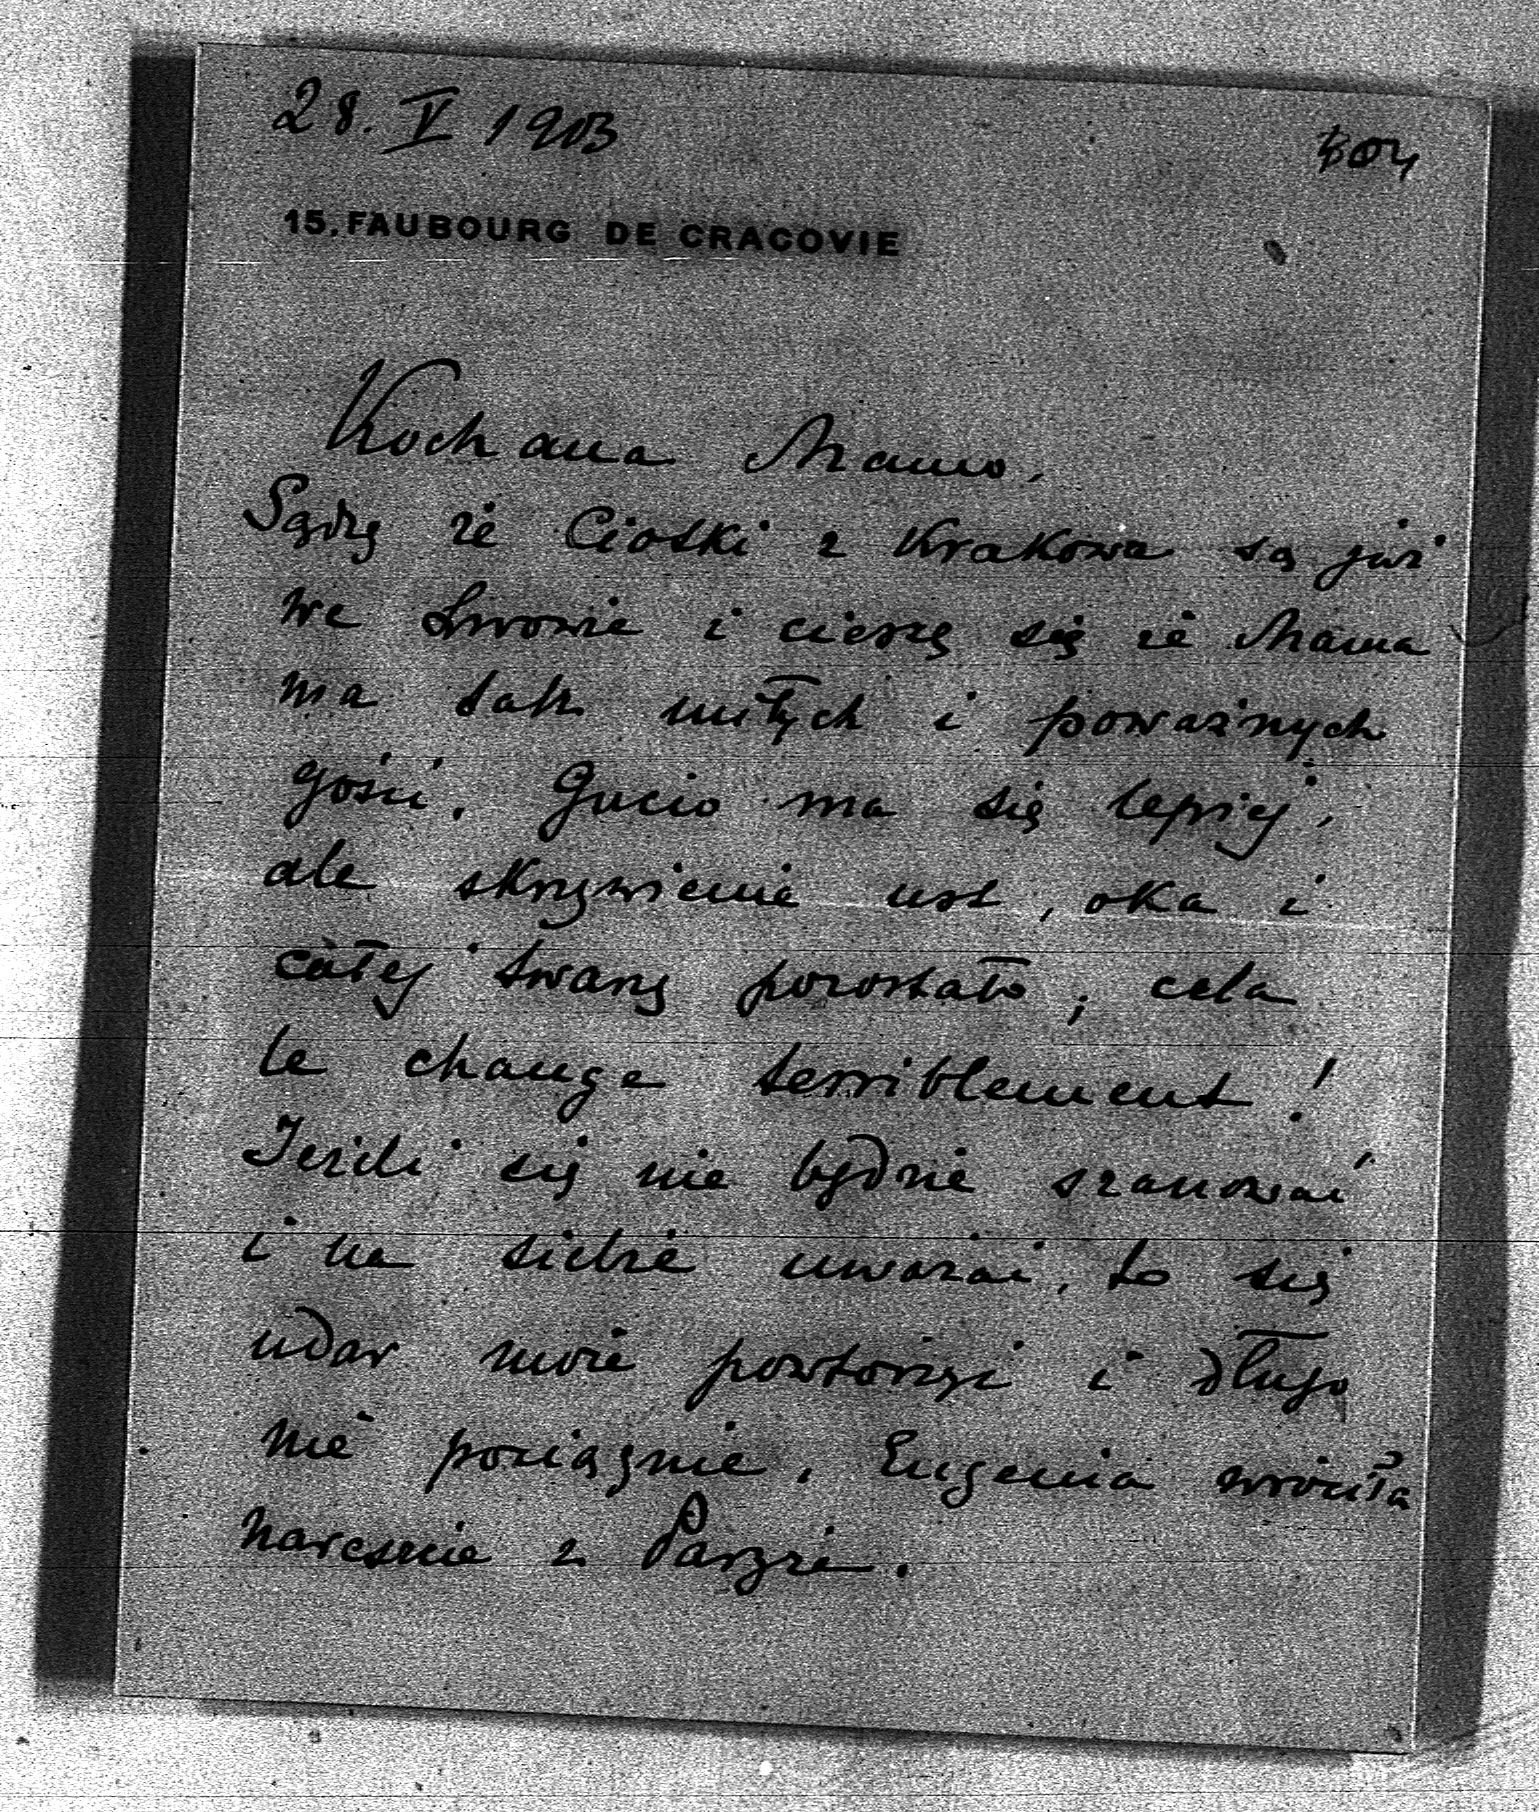 28. V 1903
15, FAUBOURG DE CRACOVIE
Kochana Mamo,
Sądzę że Ciotki z Krakowa są już
we Lwowie i cieszę się że Mama
ma tak miłych i poważnych
gości. Gucio ma się lepiej,
ale skrzywienie ust, oka i
całej twarzy pozostało; cela
le change terriblement!
Jeżeli się nie będzie szanować
i na siebie uważać, to się
udar może powtórzyć i długo
nie pociągnie. Eugenia wróciła
nareszcie z Paryża.